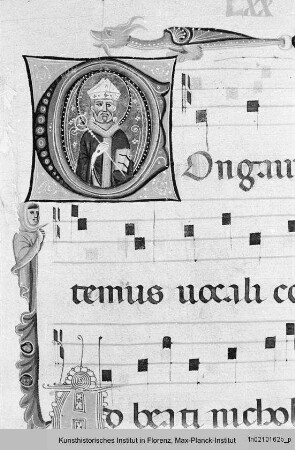 LXX
Congau
temus uocali co
o beati nichol
Kunsthistorisches Institut in Florenz, Max-Planck-Institut